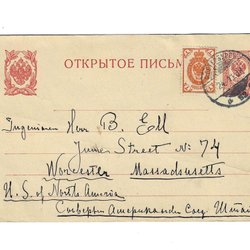 ОТКРЫТОЕ ПИСЬМ
Ingenieren Herr B. Ell
Street No 74
Worcester Massachusetts
U. S. of North America
Сѣверн Американскі Соед. Штат